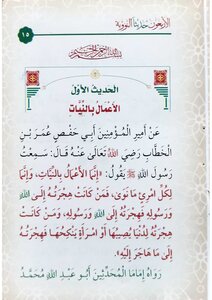 الأربعون حديثا النووية
١٥
بسم الله الرحمن الرحيم
الحديث الأول
الأعمال بالنيات
عَنْ أَمِيرِ الْمُؤْمِنِينَ أَبِي حَفْصٍ عُمَرَ بْنِ
الْخَطَّابِ رَضِيَ اللهُ تَعَالَى عَنْهُ قَالَ: سَمِعْتُ
رَسُولَ اللهِ ﷺ يَقُولُ: «إِنَّمَا الْأَعْمَالُ بِالنِّيَّاتِ، وَإِنَّمَا
لِكُلِّ امْرِئٍ مَا نَوَى، فَمَنْ كَانَتْ هِجْرَتُهُ إِلَى اللهِ
وَرَسُولِهِ فَهِجْرَتُهُ إِلَى اللهِ وَرَسُولِهِ، وَمَنْ كَانَتْ
هِجْرَتُهُ لِدُنْيَا يُصِيبُهَا أَوِ امْرَأَةٍ يَنْكِحُهَا فَهِجْرَتُهُ
إِلَى مَا هَاجَرَ إِلَيْهِ».
رَوَاهُ إِمَامَا الْمُحَدِّثِينَ أَبُو عَبْدِ اللهِ مُحَمَّدُ